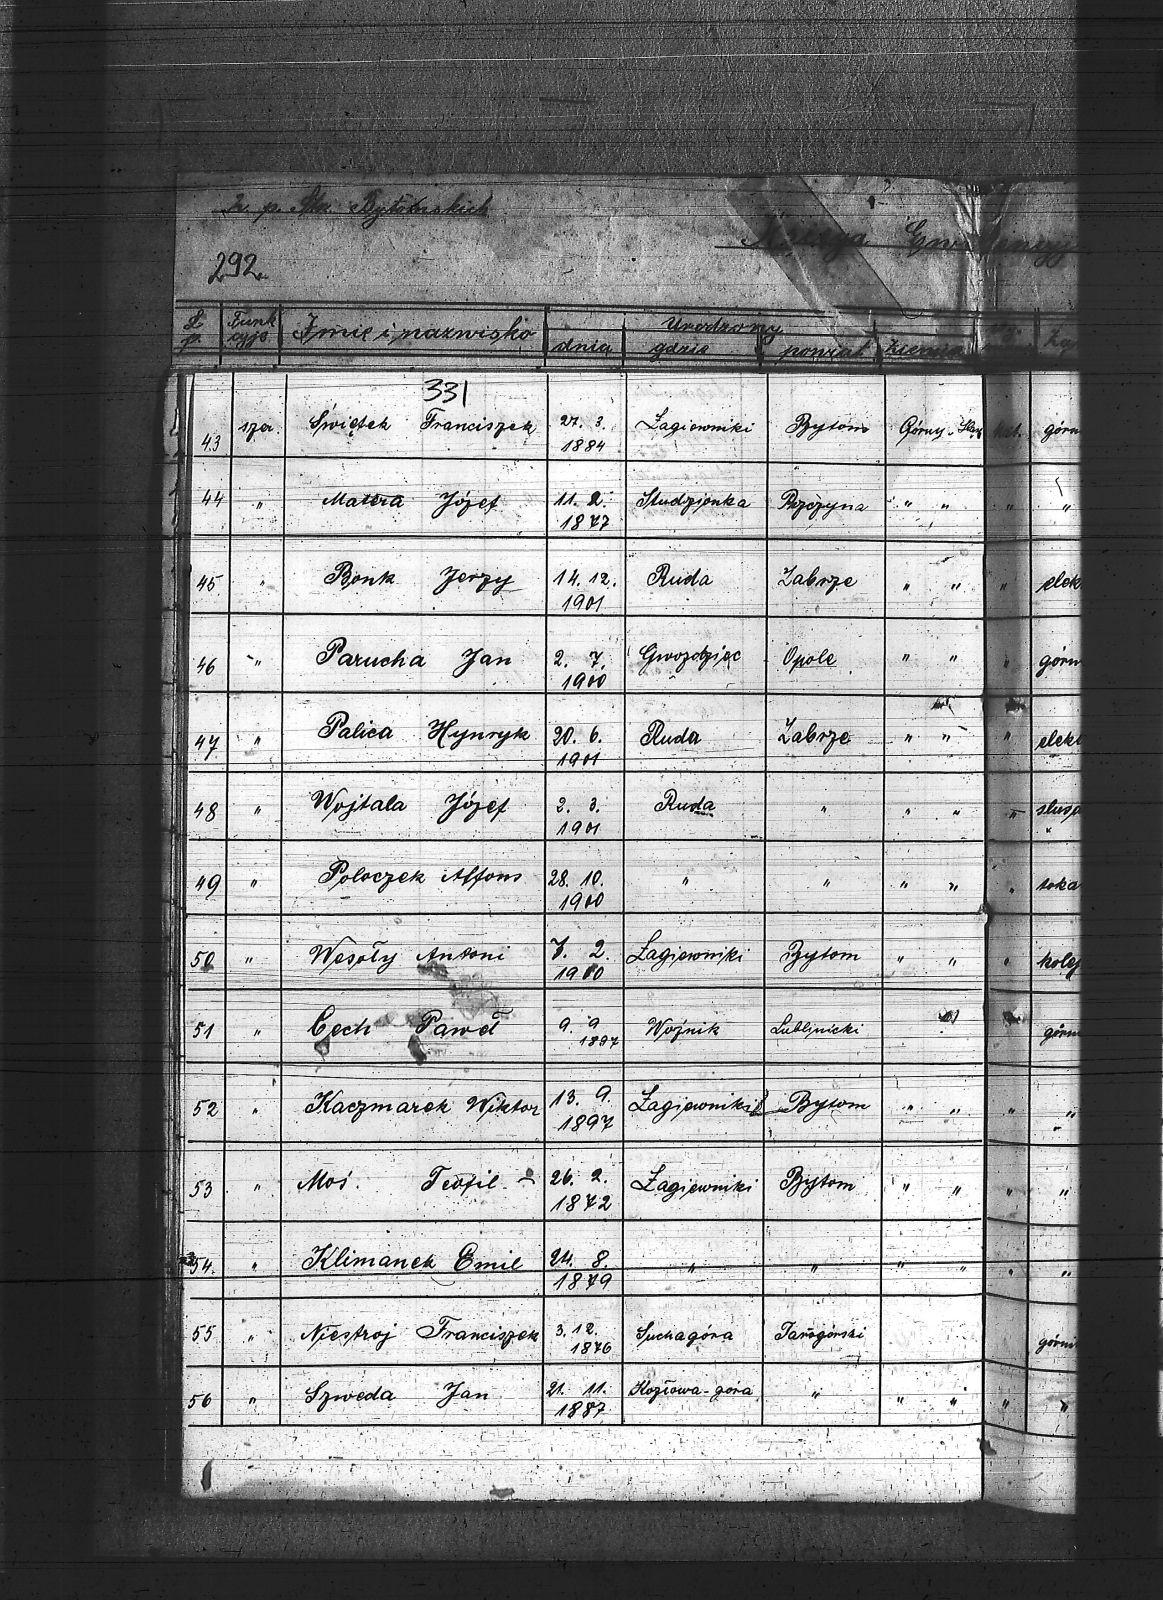 2. p. Bytomskich
292.
L. p. Funkcyja Imię i nazwisko Urodzony
dnia gdzie powiat ziemia
331
43 szer. Świętek Franciszek 27. 3. 1884 Łagiewniki Bytom Górny kat. górn
44 " Matera Józef 11. 2. 1877 Studzionka Pszczyna " " " "
45 " Bonk Jerzy 14. 12. 1901 Ruda Zabrze " " " elek
46 " Parucha Jan 2. 7. 1900 Gwozdziec Opole " " " górn
47 " Palica Hynryk 20. 6. 1901 Ruda Zabrze " " " elekt
48 " Wojtala Józef 2. 3. 1901 Ruda " " " " slusa
49 " Poloczek Alfons 28. 10. 1900 " " " " " toka
50 " Wesoły Antoni 7. 2. 1900 Łagiewniki Bytom " " " kolej
51 " Cech Paweł 9. 9. 1897 Woźnik Lublinicki górn
52 " Kaczmarek Wiktor 13. 9. 1897 Łagiewniki Bytom " " " "
53 " Moś. Teofil 26. 2. 1872 Łagiewniki Bytom " " " "
54. " Klimanek Emil 24. 8. 1879 " " " " " "
55 " Niestroj Franciszek 3. 12. 1876 Suchagóra Tarnogórski górni
56 " Szweda Jan 21. 11. 1887 Kozłowa-góra " " " " "